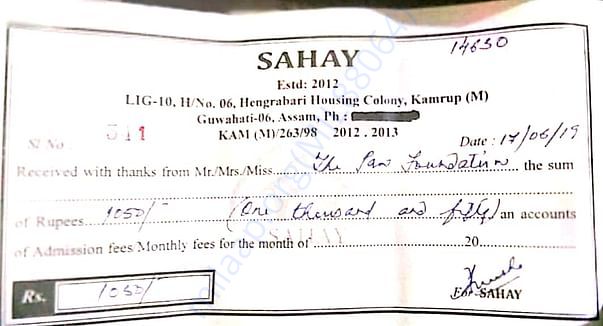 14630
SAHAY
Estd: 2012
LIG-10, H/No. 06, Hengrabari Housing Colony, Kamrup (M)
Guwahati-06, Assam, Ph :
KAM (M)/263/98 2012 . 2013
Sl No. 511 Date : 17/06/19
Received with thanks from Mr./Mrs./Miss The Paw Foundation the sum
of Rupees 1050/- (One thousand and fifty) an accounts
of Admission fees/Monthly fees for the month of 20
SAHAY
Rs. 1050/-
For SAHAY